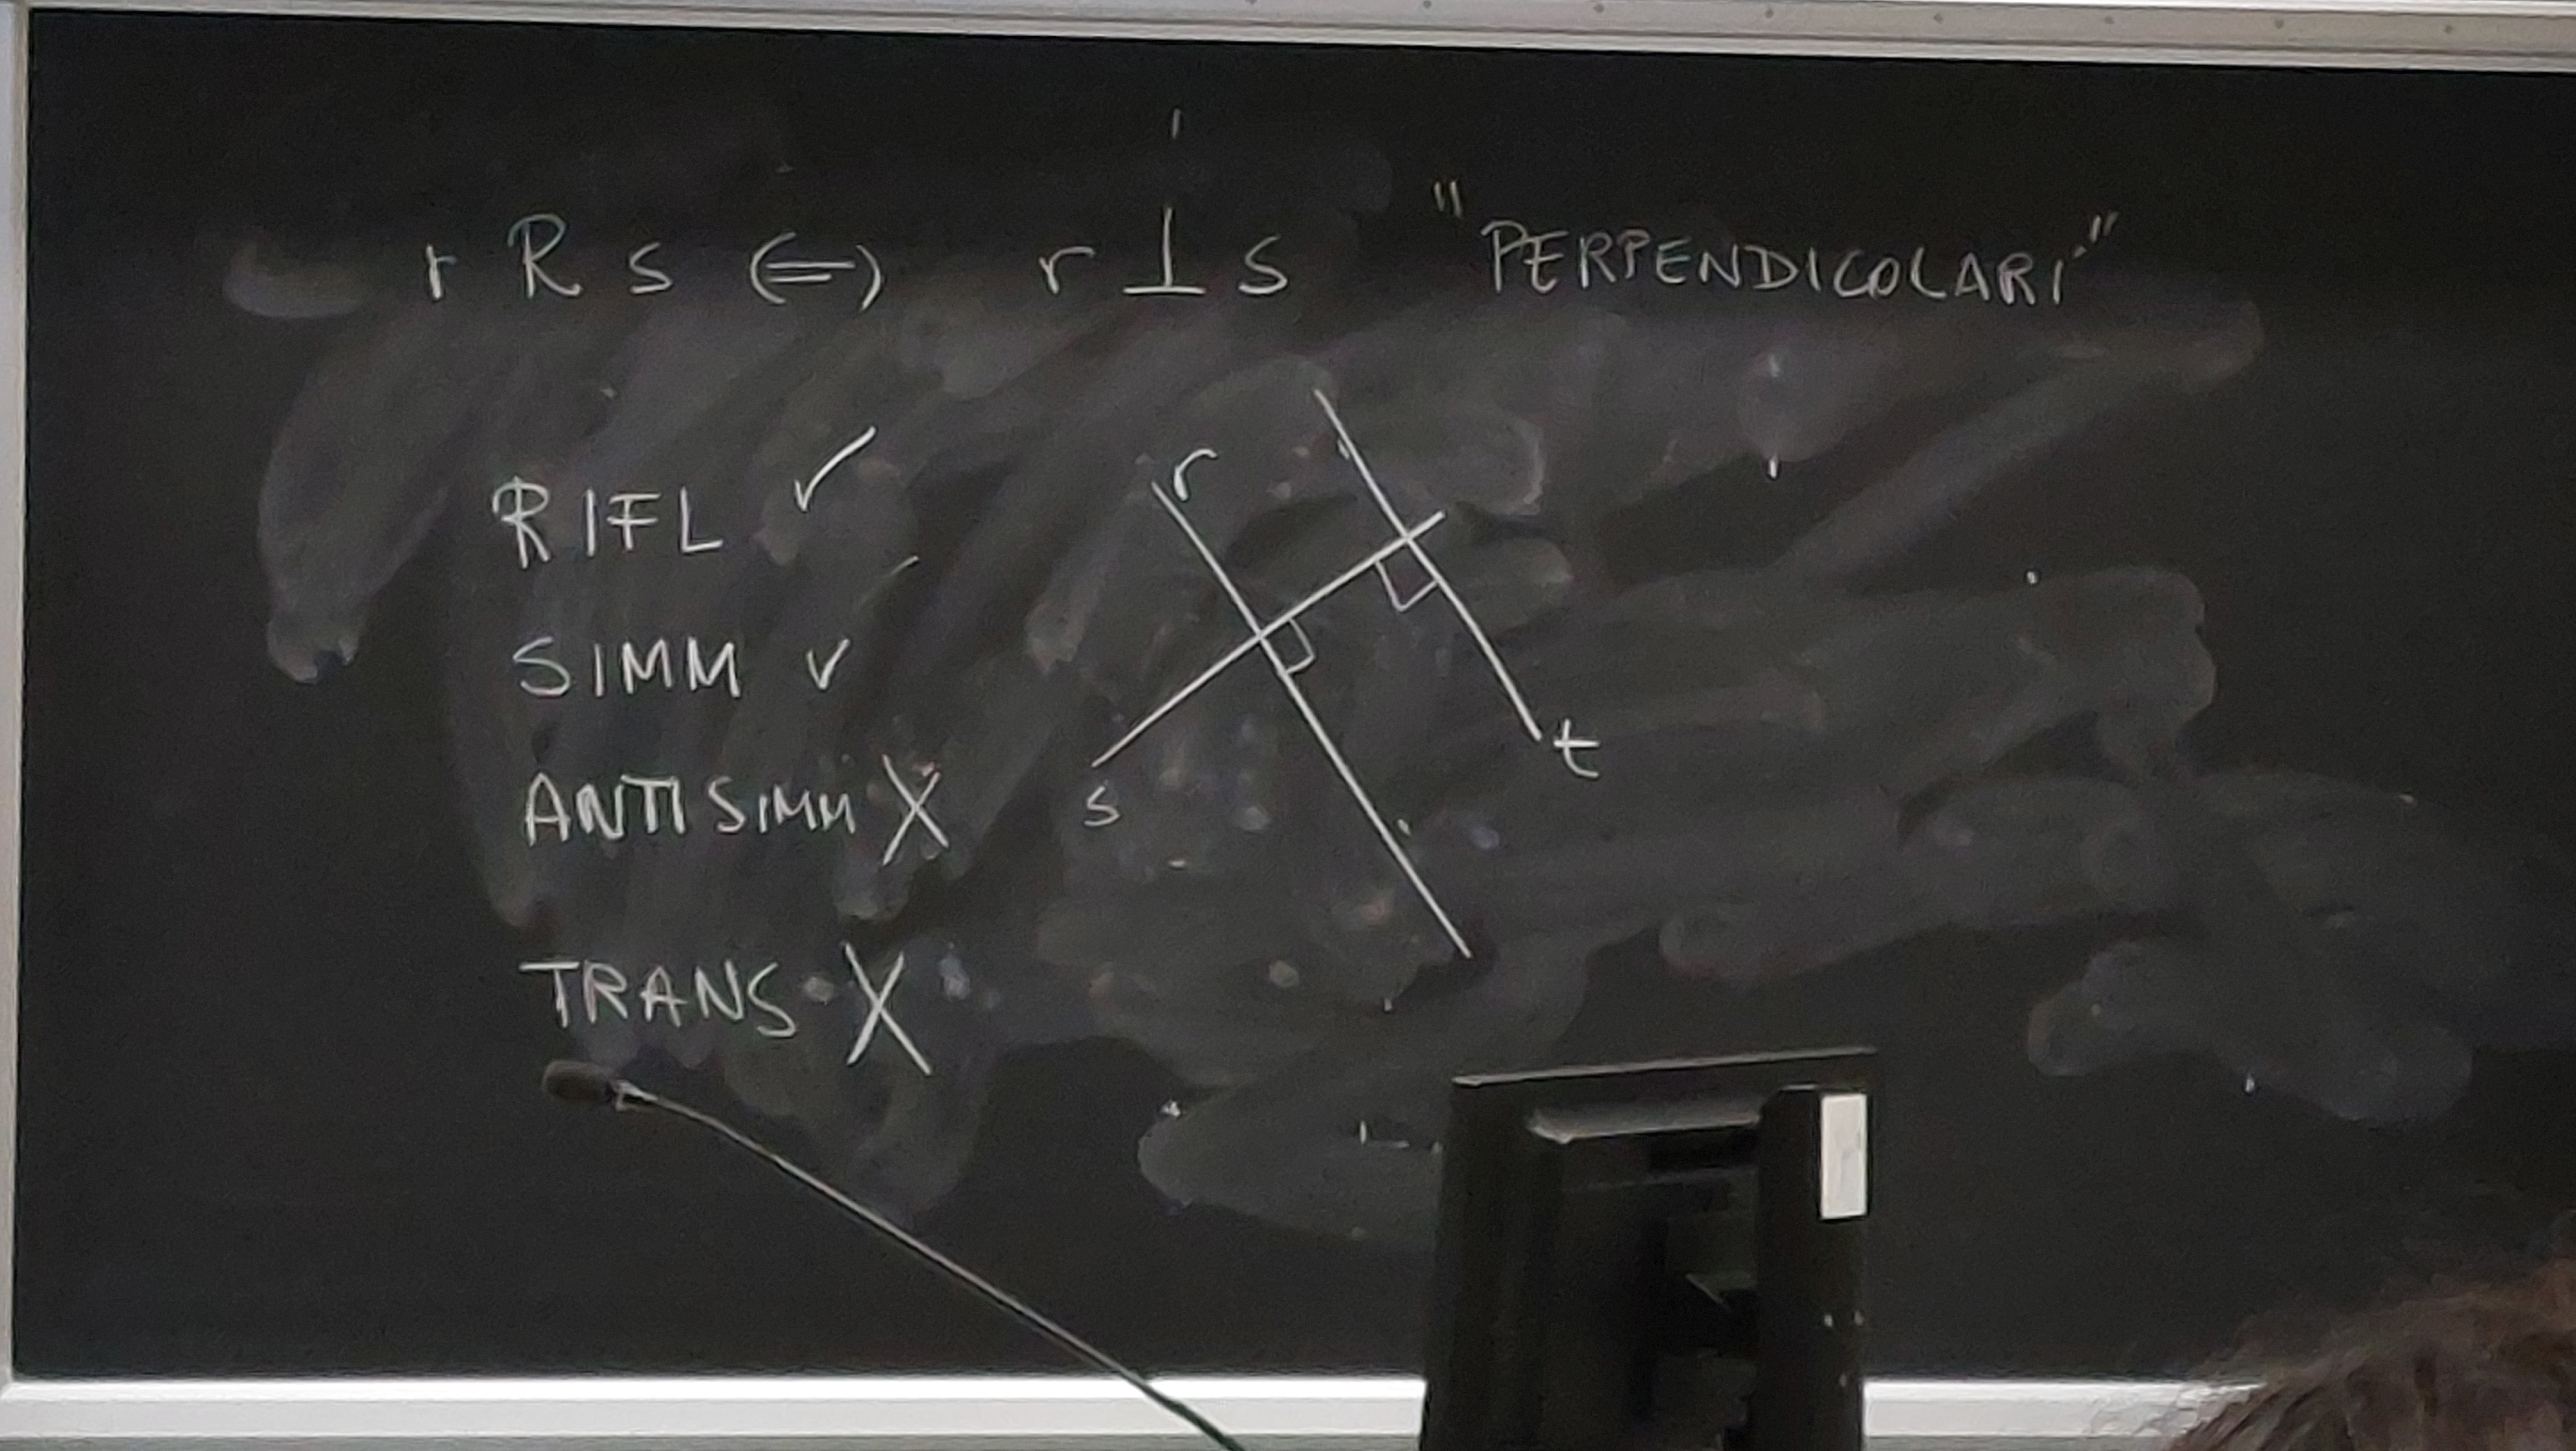 r R s ⇔ r ⊥ s "PERPENDICOLARI"
RIFL ✓
SIMM ✓
ANTISIMM X
TRANS X
r
s
t